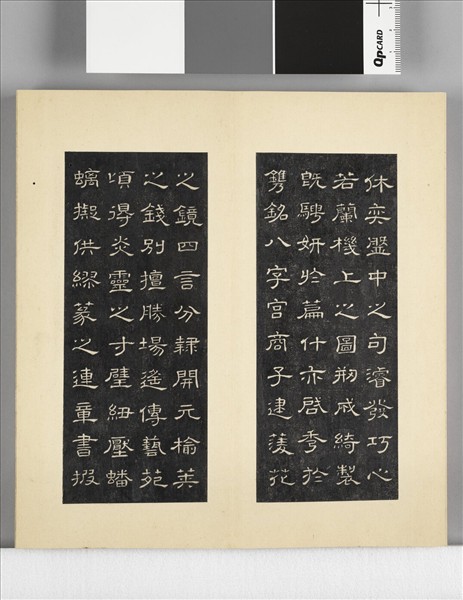 QpCARD
休奕盤中之句濬發巧心
若蘭機上之圖剏成綺製
既騁妍於篇什亦啓秀於
鐫銘八字宮商子建菱花
之鏡四言分隸開元榆莢
之錢別擅勝場遙傳藝苑
頃得炎靈之寸璧紐壓蟠
螭擬供繆篆之連章書掇